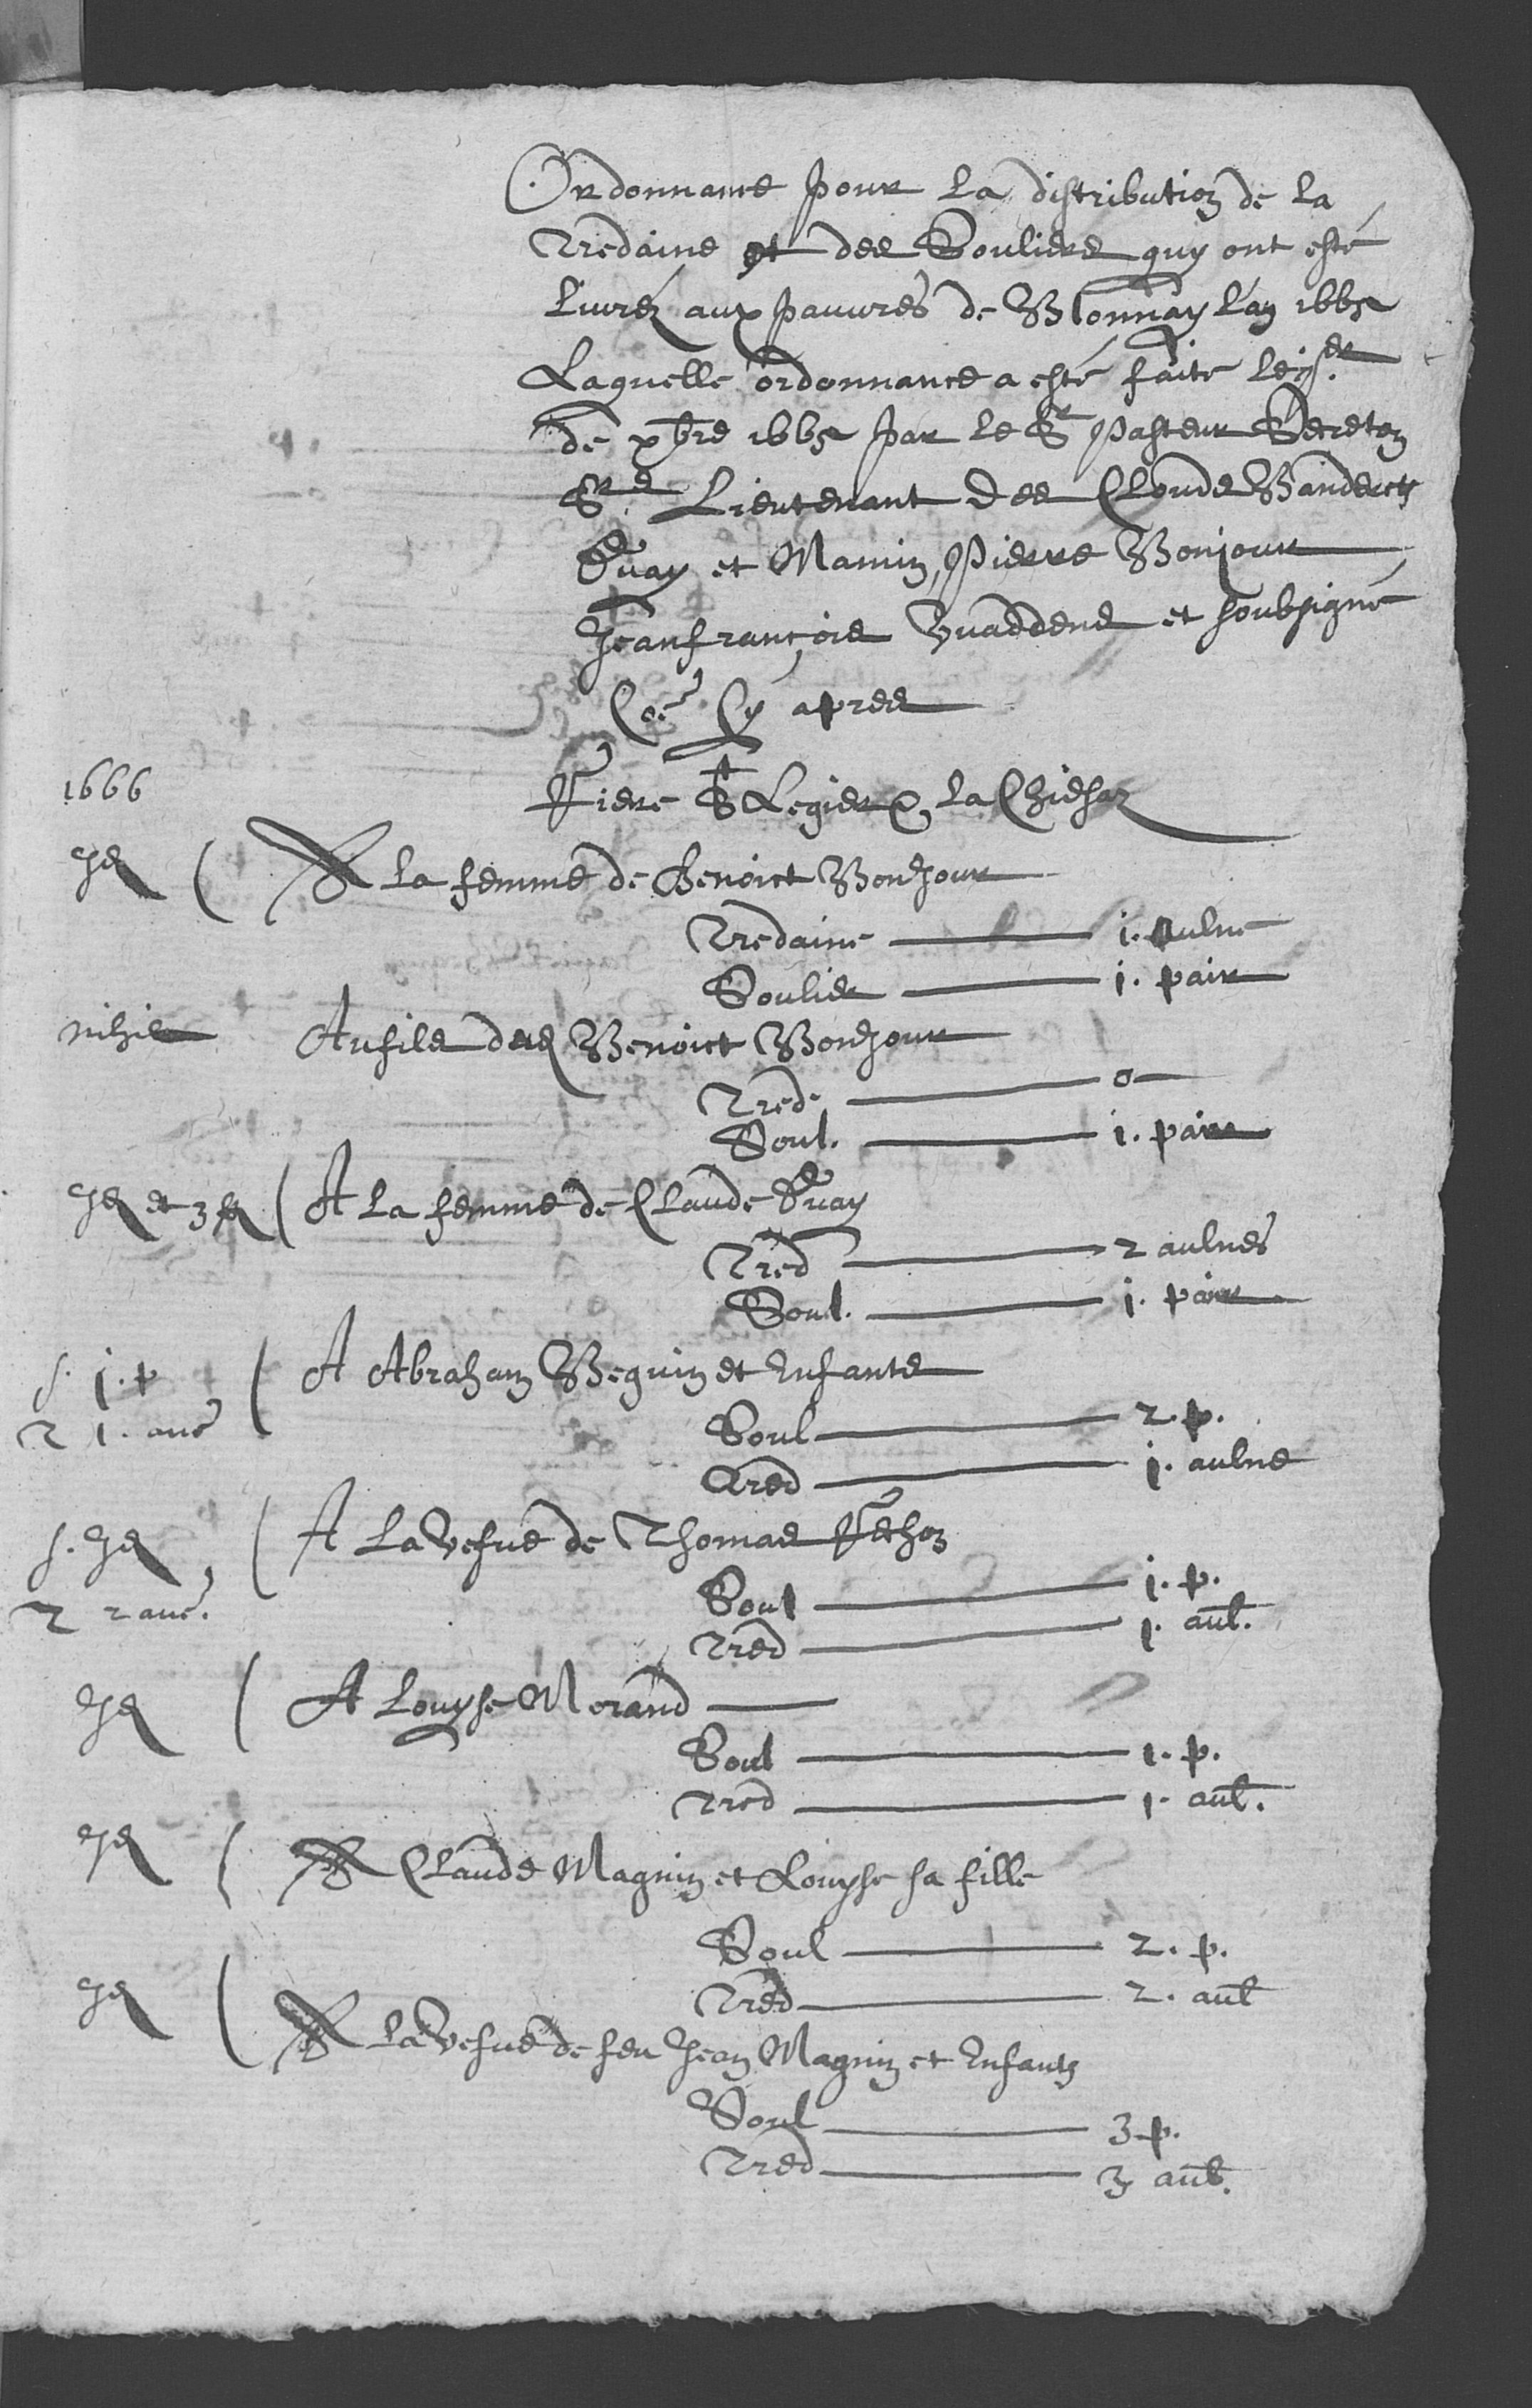 Ordonnance pour la distribution de la
Tredaine et des Souliers quy ont esté
livréz aux pauvres de Blonnay l'an 1665
Laquelle ordonnance a esté faite le
de xbre 1665 par le Sr Pasteur Secretan
Srs Lieutenant Des Clouds Banderets
Duay et Mamin, Pierre Bonjour
Jeanfrançois Vuaddens et soubsigné
Coe Cy apres
Tiers St Legier & la Chiesaz
1666
Id ( A la femme de Benoict Bonjour
Tredaine — i. aulne
Soulier — i. pair
nihil Au fils de Benoict Bonjour
Tred. — o
Soul. — i. pair
Id et 3 ( A la femme de Claude Duay
Tred — 2 aulnes
Soul. — i. pair
s. j. p ( A Abraham Beguin et Enfants
T 1. aue
Soul — 2. p.
Tred — j. aulne
s. Id ( A La Vefue de Thomas
T 2 aue.
Soul — j. p.
Tred — 1. aul.
Id ( A Louyse Morand —
Soul — 1. p.
Tred — 1. aul.
Id ( A Claude Magnin et Louyse sa fille
Soul — 2. p.
Tred — 2. aul
Id ( A la Vefue de feu Jean Magnin et Enfants
Soul — 3 p.
Tred — 3 aul.